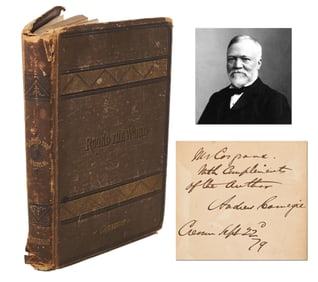 ROUND THE WORLD
CARNEGIE
Mr Cosgrave.
With Compliments
of the Author
Andrew Carnegie
22d
/79